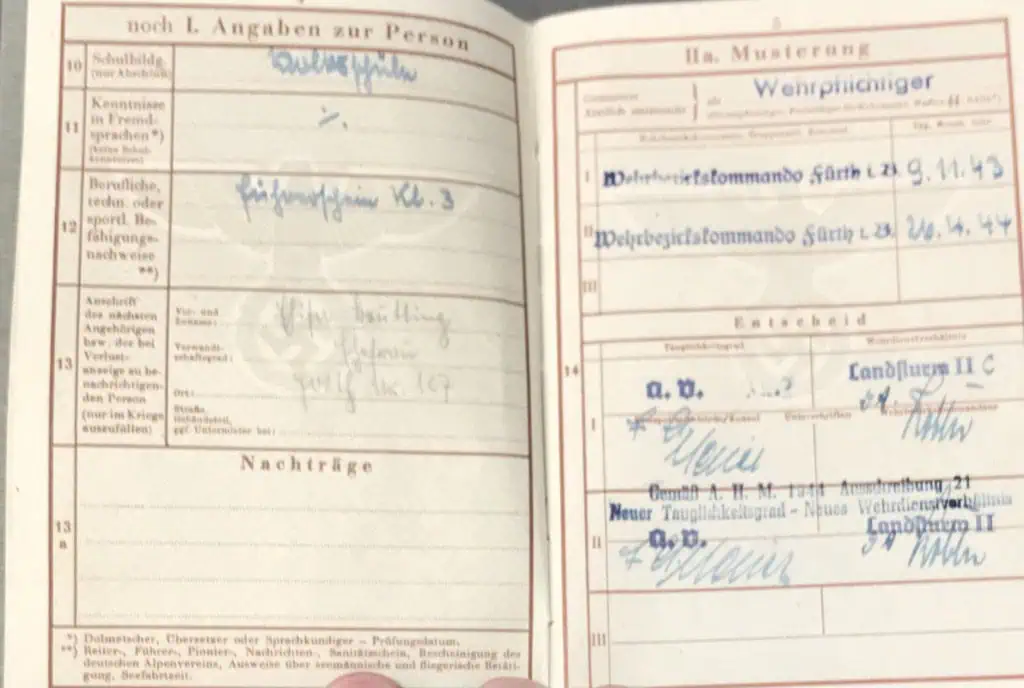 noch I. Angaben zur Person
10 Schulbildg.
(nur Abschluß)
Volksschule
11 Kenntnisse
in Fremd-
sprachen*)
(keine Schul-
kenntnisse)
·/.
12 Berufliche,
techn. oder
sportl. Be-
fähigungs-
nachweise
**)
Führerschein Kl. 3
13 Anschrift
des nächsten
Angehörigen
bzw. der bei
Verlust-
anzeige zu be-
nachrichtigen-
den Person
(nur im Kriege
auszufüllen)
Vor- und
Zuname:
Verwandt-
schaftsgrad:
Ort:
Straße,
Gebäudeteil,
ggf. Untermieter bei:
Nachträge
13
a
*) Dolmetscher, Übersetzer oder Sprachkundiger – Prüfungsdatum.
**) Reiter-, Führer-, Pionier-, Nachrichten-, Sanitätsschein, Bescheinigung des
deutschen Alpenvereins, Ausweise über seemännische und fliegerische Betäti-
gung, Seefahrtzeit.
5
IIa. Musterung
als Wehrpflichtiger
I Wehrbezirkskommando Fürth i. B. 9.11.43
II Wehrbezirkskommando Fürth i. B. 20.4.44
III
Entscheid
14
Tauglichkeitsgrad Wehrdienstverhältnis
I a. v. Landsturm II C
Gemäß A. H. M. 1944 Ausschreibung 21
Neuer Tauglichkeitsgrad - Neues Wehrdienstverhältnis
II a. v. Landsturm II
III